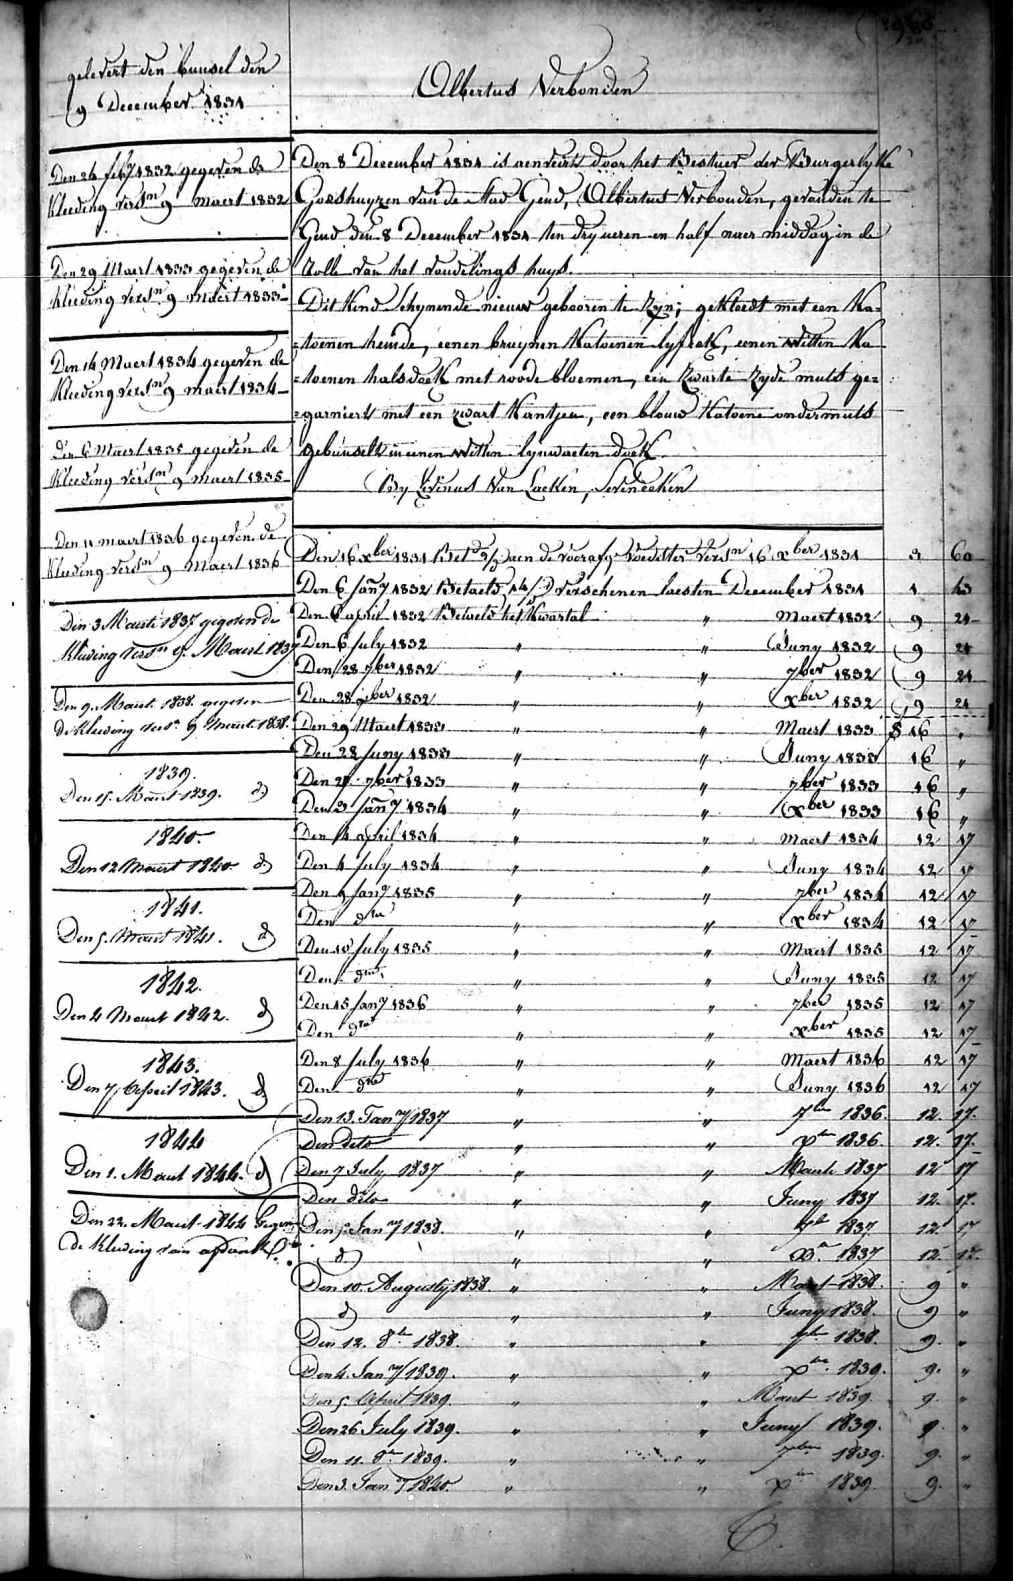 gelevert den bunsel den
9 December 1831
Albertus Verbonden
Den 26 feby 1832 gegeven de
Kleeding versn 9 maert 1832
Den 29 Maert 1833 gegeven de
Kleeding versn 9 maert 1833
Den 14 Maert 1834 gegeven de
Kleeding versn 9 maert 1834
Den 6 Maert 1835 gegeven de
Kleeding versn 9 maert 1835
Den 11 maert 1836 gegeven de
Kleeding versn 9 Maert 1836
Den 3 Maerte 1837 gegeven de
Kleeding versn 9 Maert 1837
Den 9 Maert 1838 gegeven
de kleeding versn 9 Maert 1838.
1839.
Den 15. Maert 1839. do
1840.
Den 12 Maert 1840. do
1841.
Den 5. Maert 1841. do
1842.
Den 4 Maert 1842. do
1843.
Den 7 April 1843. do
1844
Den 1. Maert 1844. do
Den 22. Maert 1844 Gegeven
de Kleeding van
Den 8 December 1831 is aenveirt door het Bestuer der Burgerlyke
Godshuyzen van de stad Gend, Albertus Verbonden, gevonden te
Gend den 8 December 1831 ten dry ueren en half naer middag in de
Rolle van het vondelings huys.
Dit Kind schynende nieuw gebooren te Zyn; gekleedt met een Ka=
=toenen hemde, eenen bruynen Katoenen lyfrok, eenen witten Ka
=toenen halsdoek met roode bloemen, een zwarte zyde muts ge=
=garniert met een zwart Kantjen, een blouw Katoene ondermuts
gebunselt in eenen witten lynwaeten doek.
By Livinus Van Laeken, Sevenecken
Den 16 xber 1831 Betd aen de voorafge voedster versn 16 xber 1831 3 60
Den 6 Jany 1832 Betaeld verschenen laesten December 1831 1 43
Den 6 april 1832 Betaeld het Kwartal " Maert 1832 9 21
Den 6 July 1832 " " Juny 1832 9 21
Den 28 7ber 1832 " " 7ber 1832 9 21
Den 28 xber 1832 " " xber 1832 9 21
Den 29 Maert 1833 " " Maert 1833 16 "
Den 28 Juny 1833 " " Juny 1833 16 "
Den 27 7ber 1833 " " 7ber 1833 16 "
Den 3 Jany 1834 " " xber 1833 16 "
Den 14 april 1834 " " Maert 1834 12 17
Den 4 July 1834 " " Juny 1834 12 17
Den 9 Jany 1835 " " 7ber 1834 12 17
Den dto " " xber 1834 12 17
Den 10 July 1835 " " Maert 1835 12 17
Den dto " " Juny 1835 12 17
Den 15 Jany 1836 " " 7ber 1835 12 17
Den dto " " xber 1835 12 17
Den 8 July 1836 " " Maert 1836 12 17
Den dto " " Juny 1836 12 17
Den 13. Jany 1837 " " 7ber 1836. 12. 17.
Den dito " " xber 1836. 12. 17.
Den 7 July 1837 " " Maerte 1837 12 17
Den dito " " Juny 1837 12. 17.
Den 5 Jany 1838. " " 7ber 1837 12. 17
do " " xber 1837 12. 17.
Den 10. Augusty 1838. " " Maert 1838. 9 "
do " " Juny 1838. 9 "
Den 12. 8ber 1838. " " 7ber 1838. 9. "
Den 4. Jany 1839. " " xber 1839. 9. "
Den 5 April 1839. " " Maert 1839. 9. "
Den 26 July 1839. " " Juny 1839. 9 "
Den 11. 8ber 1839. " " 7ber 1839. 9. "
Den 3. Jany 1840. " " xber 1839. 9. "